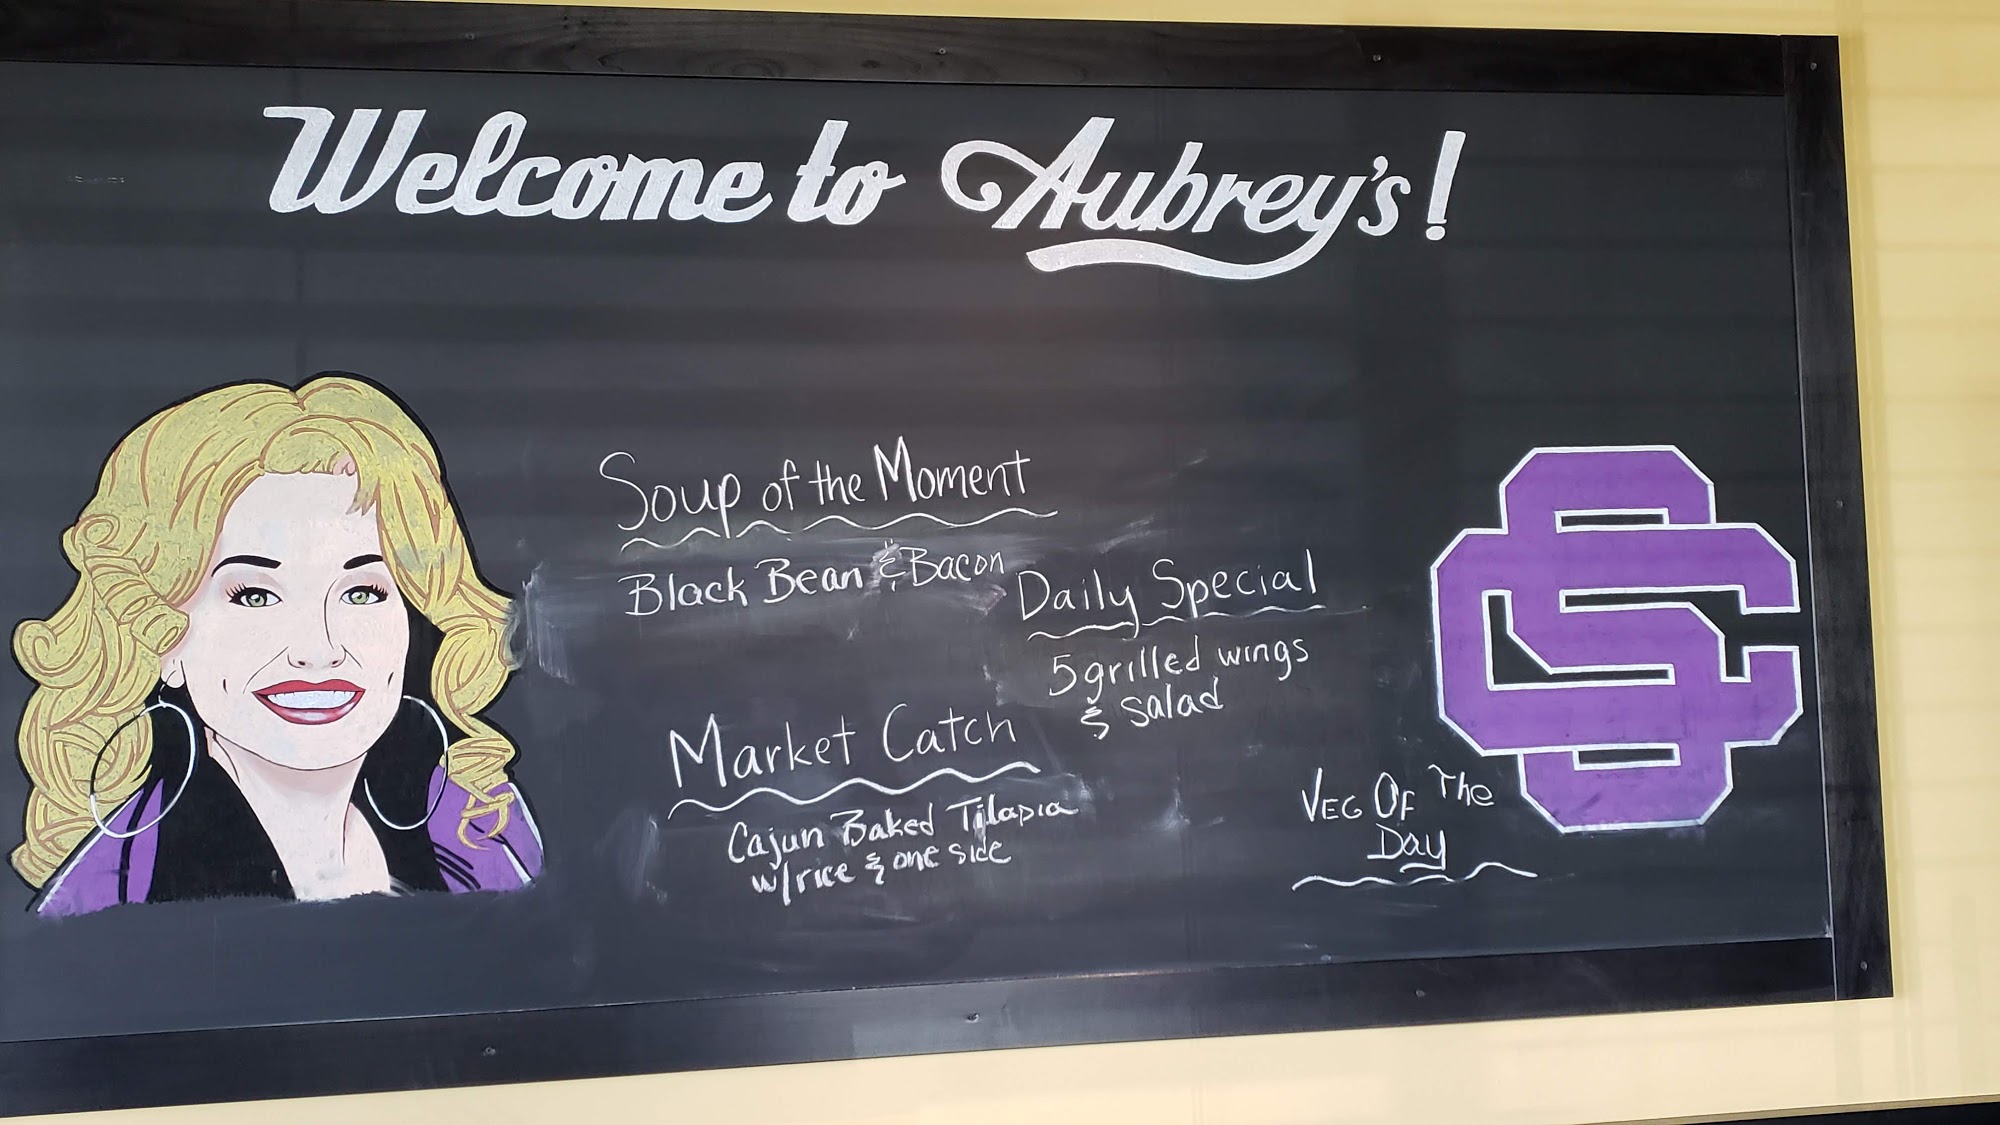 Welcome to Aubrey's!
Soup of the Moment
Black Bean & Bacon
Daily Special
5 grilled wings
& salad
Market Catch
Cajun Baked Tilapia
w/rice & one side
Veg Of The
Day
SC